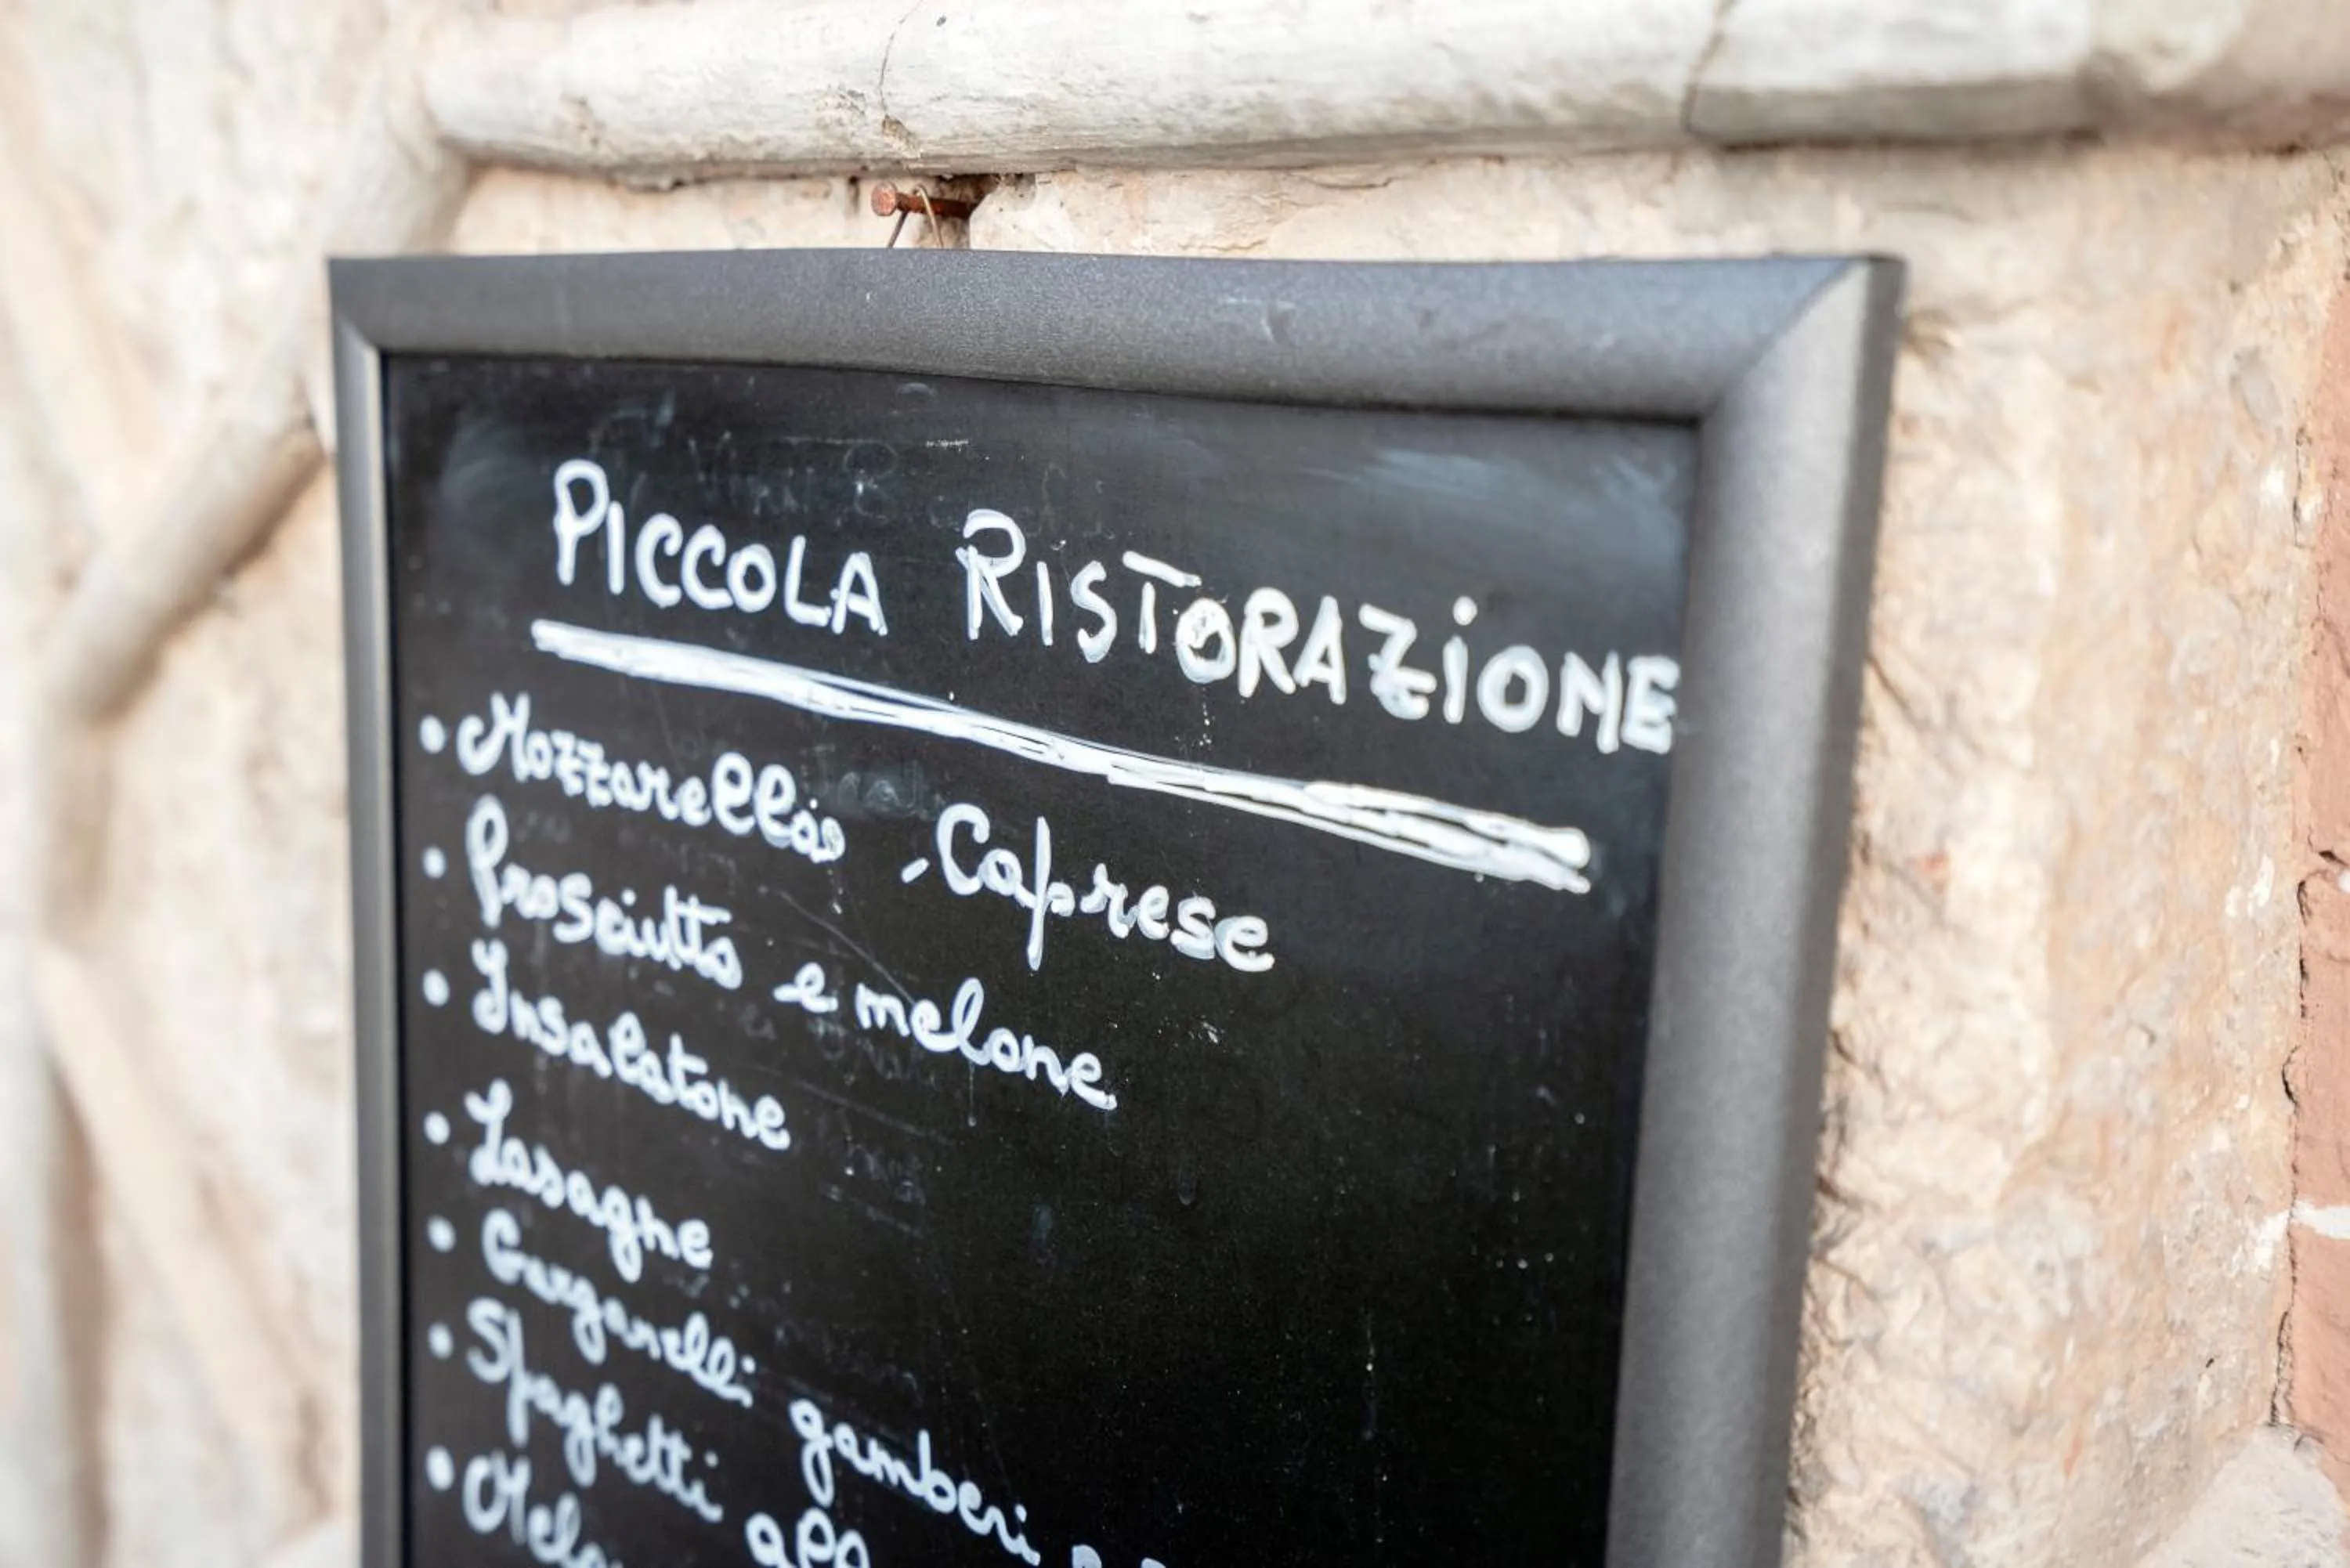 PICCOLA RISTORAZIONE
• Mozzarella - Caprese
• Prosciutto e melone
• Insalatone
• Lasagne
• Garganelli gamberi
• Spaghetti